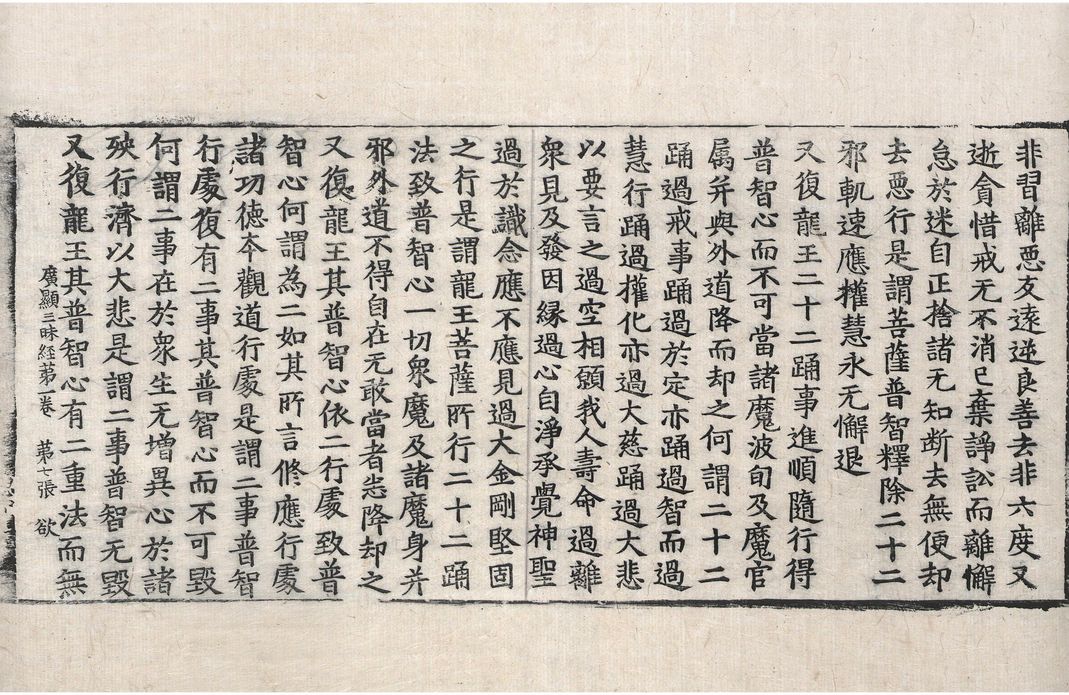 非習離悪友遠逆良善去非六度又
逝貪惜戒无不消已棄諍訟而離懈
怠於迷自正捨諸无知断去無便却
去悪行是謂菩薩普智釋除二十二
邪軌速應權慧永无懈退
又復龍王二十二踊事進順隨行得
普智心而不可當諸魔波旬及魔官
属并與外道降而却之何謂二十二
踊過戒事踊過於定亦踊過智而過
慧行踊過權化亦過大慈踊過大悲
以要言之過空相願我人壽命過離
衆見及發因縁過心自淨承覺神聖
過於識念應不應見過大金剛堅固
之行是謂龍王菩薩所行二十二踊
法致普智心一切衆魔及諸魔身并
邪外道不得自在无敢當者悉降却之
又復龍王其普智心依二行處致普
智心何謂為二如其所言修應行處
諸功徳夲觀道行處是謂二事普智
行處復有二事其普智心而不可毀
何謂二事在於衆生无增異心於諸
殃行濟以大悲是謂二事普智无毀
又復龍王其普智心有二重法而無
廣顯三昧経苐一卷 苐七張 欲